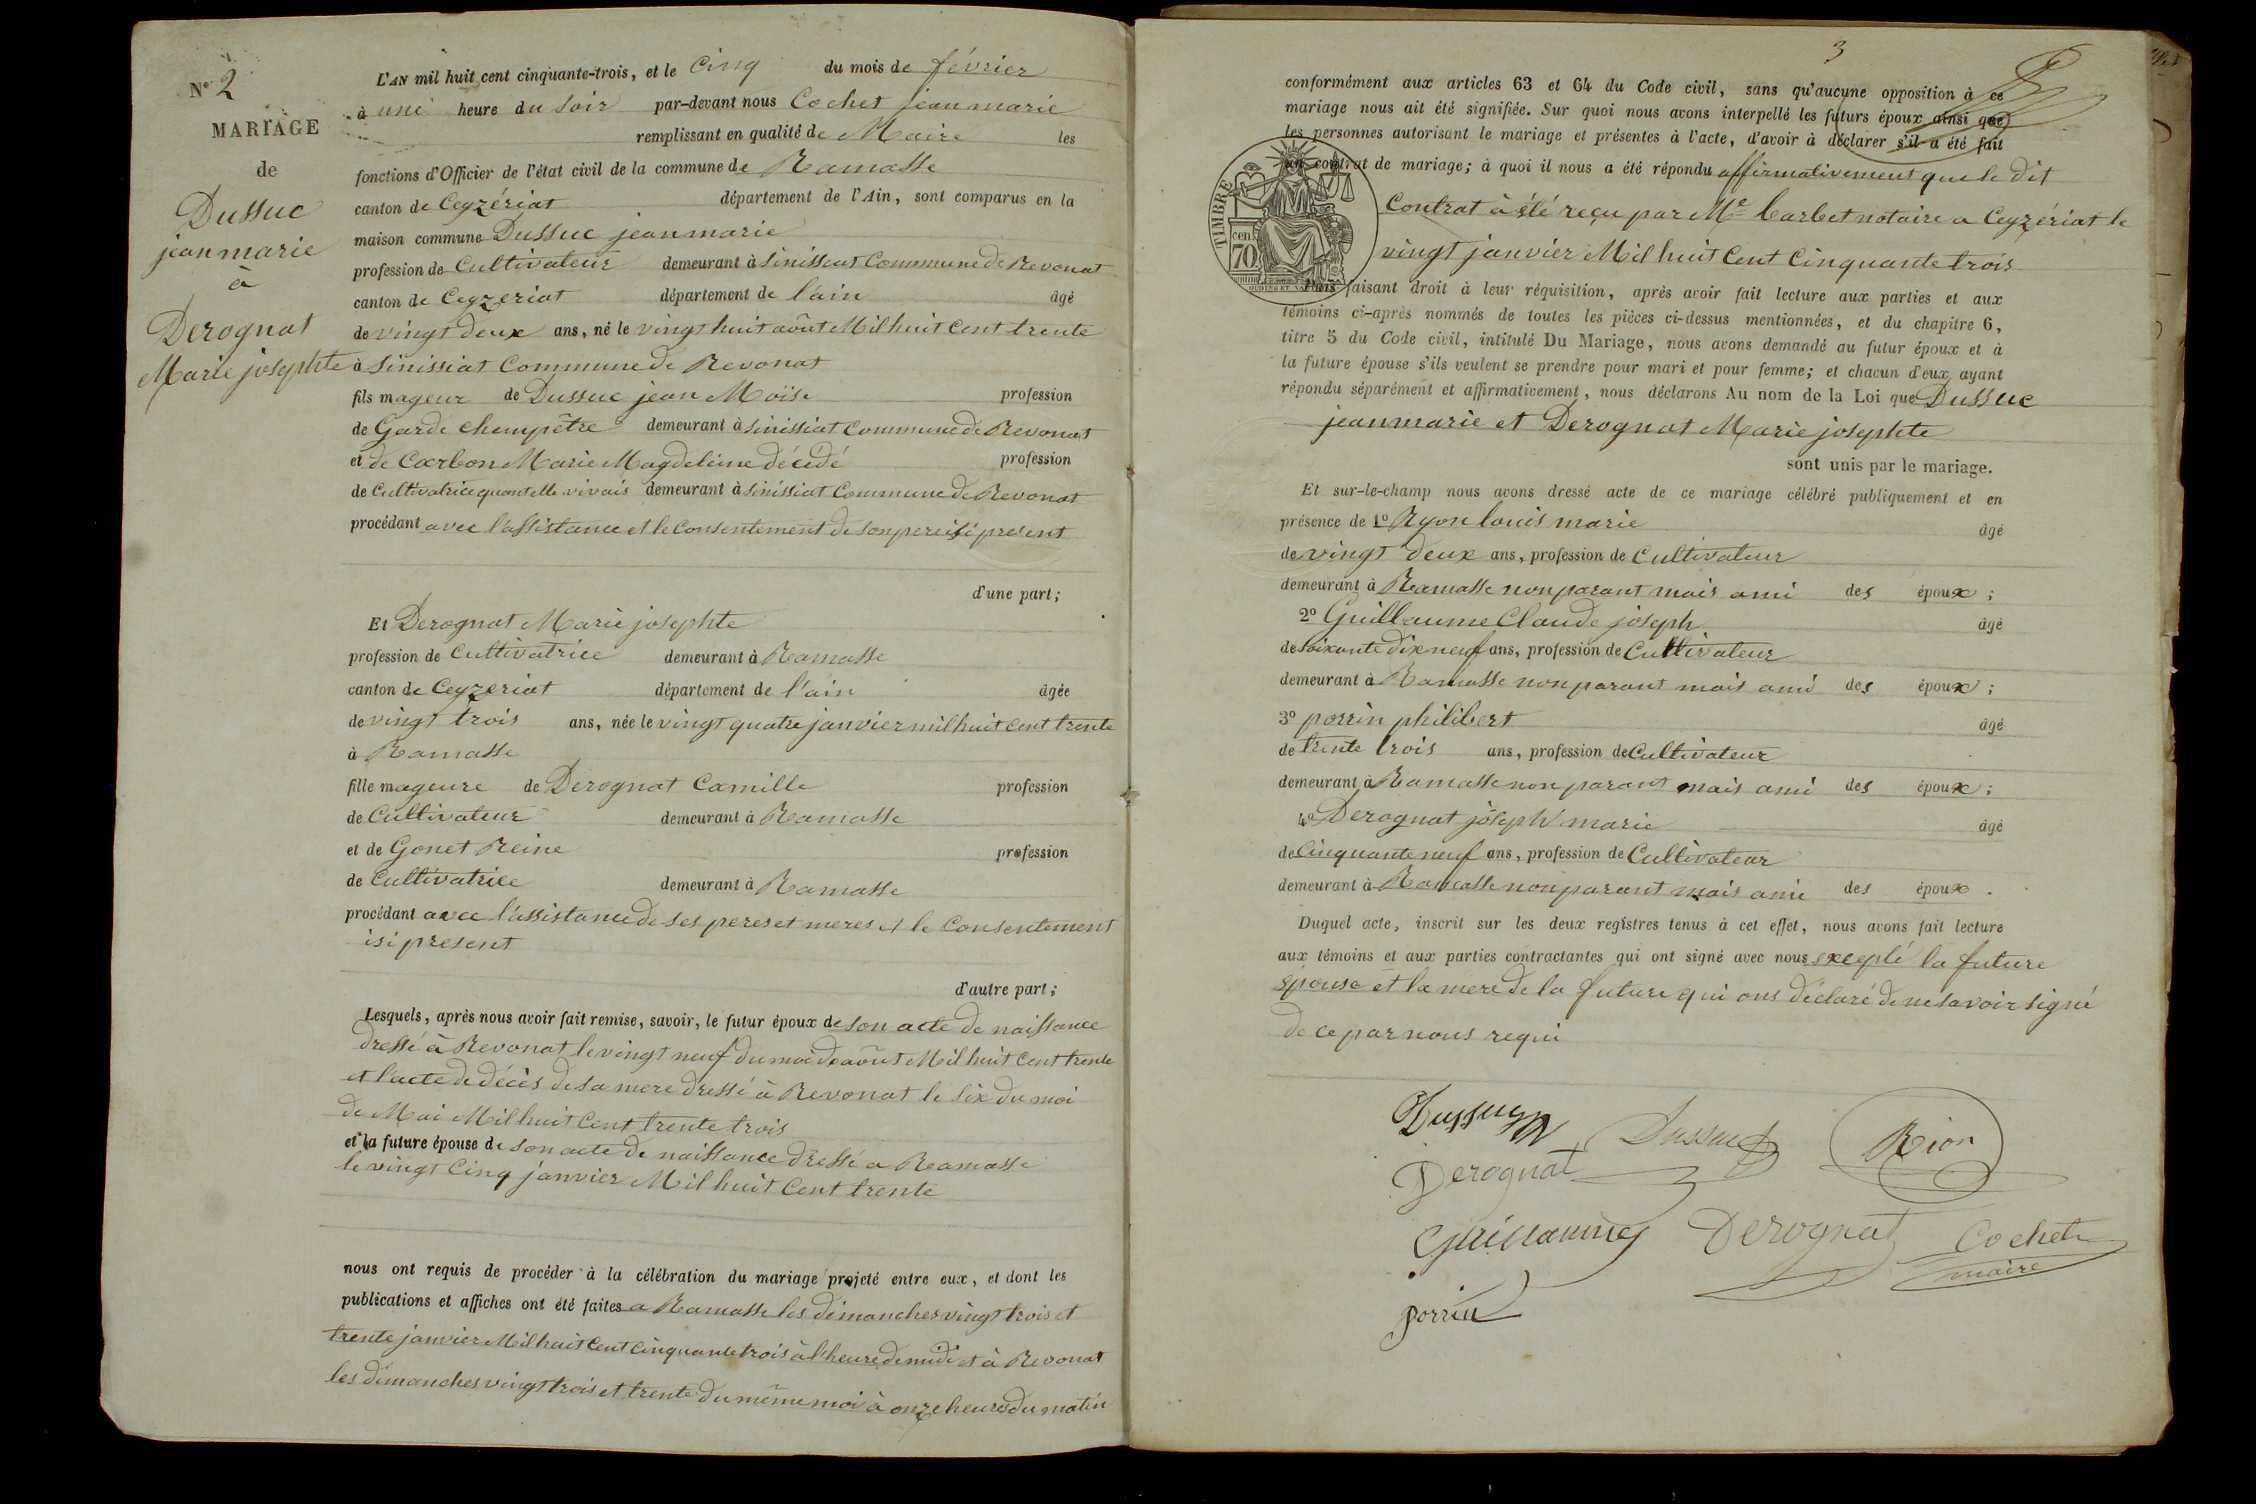 N° 2
MARIAGE
de
Dussuc
jean marie
à
Derognat
Marie josephte
L'AN mil huit cent cinquante-trois, et le Cinq du mois de février
à une heure du soir par-devant nous Cochet jean marie
remplissant en qualité de Maire les
fonctions d'Officier de l'état civil de la commune de Ramasse
canton de Ceyzériat département de l'Ain, sont comparus en la
maison commune Dussuc jean marie
profession de Cultivateur demeurant à Sinissiat Commune de Revonat
canton de Ceyzeriat département de l'ain âgé
de vingt deux ans, né le vingt huit août Mil huit Cent trente
à Sinissiat Commune de Revonat
fils mageur de Dussuc jean Moïse profession
de Garde champêtre demeurant à Sinissiat Commune de Revonat
et de Carbon Marie Magdeleine décédé profession
de Cultivatrice quant elle vivais demeurant à Sinissiat Commune de Revonat
procédant avec l'assistance et le Consentement de son pere isi present
d'une part;
Et Derognat Marie josephte
profession de Cultivatrice demeurant à Ramasse
canton de Ceyzeriat département de l'ain âgée
de vingt trois ans, née le vingt quatre janvier mil huit cent trente
à Ramasse
fille mageure de Derognat Camille profession
de Cultivateur demeurant à Ramasse
et de Gonet Reine profession
de Cultivatrice demeurant à Ramasse
procédant avec l'assistance de ses peres et meres et le Consentement
isi present
d'autre part;
Lesquels, après nous avoir fait remise, savoir, le futur époux de son acte de naissance
dressé à Revonat le vingt neuf du moi de août Mil huit Cent trente
et l'acte de décès de sa mere dressé à Revonat le six du moi
de Mai Mil huit Cent trente trois
et la future épouse de son acte de naissance dressé a Ramasse
le vingt Cinq janvier Mil huit Cent trente
nous ont requis de procéder à la célébration du mariage projeté entre eux, et dont les
publications et affiches ont été faites a Ramasse les dimanches vingt trois et
trente janvier Mil huit Cent Cinquante trois à l'heure de midi et à Revonat
les dimanches vingt trois et trente du même moi à onze heures du matin
3
conformément aux articles 63 et 64 du Code civil, sans qu'aucune opposition à ce
mariage nous ait été signifiée. Sur quoi nous avons interpellé les futurs époux ainsi que
les personnes autorisant le mariage et présentes à l'acte, d'avoir à déclarer s'il a été fait
un contrat de mariage; à quoi il nous a été répondu affirmativement que le dit
Contrat à été reçu par Me Carbet notaire a Ceyzériat le
vingt janvier Mil huit Cent Cinquante trois
TIMBRE
cen.
70
faisant droit à leur réquisition, après avoir fait lecture aux parties et aux
témoins ci-après nommés de toutes les pièces ci-dessus mentionnées, et du chapitre 6,
titre 5 du Code civil, intitulé Du Mariage, nous avons demandé au futur époux et à
la future épouse s'ils veulent se prendre pour mari et pour femme; et chacun d'eux ayant
répondu séparément et affirmativement, nous déclarons Au nom de la Loi que Dussuc
jean marie et Derognat Marie josephte
sont unis par le mariage.
Et sur-le-champ nous avons dressé acte de ce mariage célébré publiquement et en
présence de 1° Ryon louis marie âgé
de vingt deux ans, profession de Cultivateur
demeurant à Ramasse non parant mais ami des époux;
2° Guillaume Claude joseph âgé
de soixante dix neuf ans, profession de Cultivateur
demeurant à Ramasse non parant mais ami des époux;
3° porrin philibert âgé
de trente trois ans, profession de Cultivateur
demeurant à Ramasse non parant mais ami des époux;
4° Derognat joseph marie âgé
de Cinquante neuf ans, profession de Cultivateur
demeurant à Ramasse non parant mais ami des époux.
Duquel acte, inscrit sur les deux registres tenus à cet effet, nous avons fait lecture
aux témoins et aux parties contractantes qui ont signé avec nous excepté la future
épouse et la mere de la future qui ons déclaré de ne savoir signé
de ce par nous requi
Dussuc Dussuc Rion
Derognat
Guillaume Derognat Cochet
maire
porrin